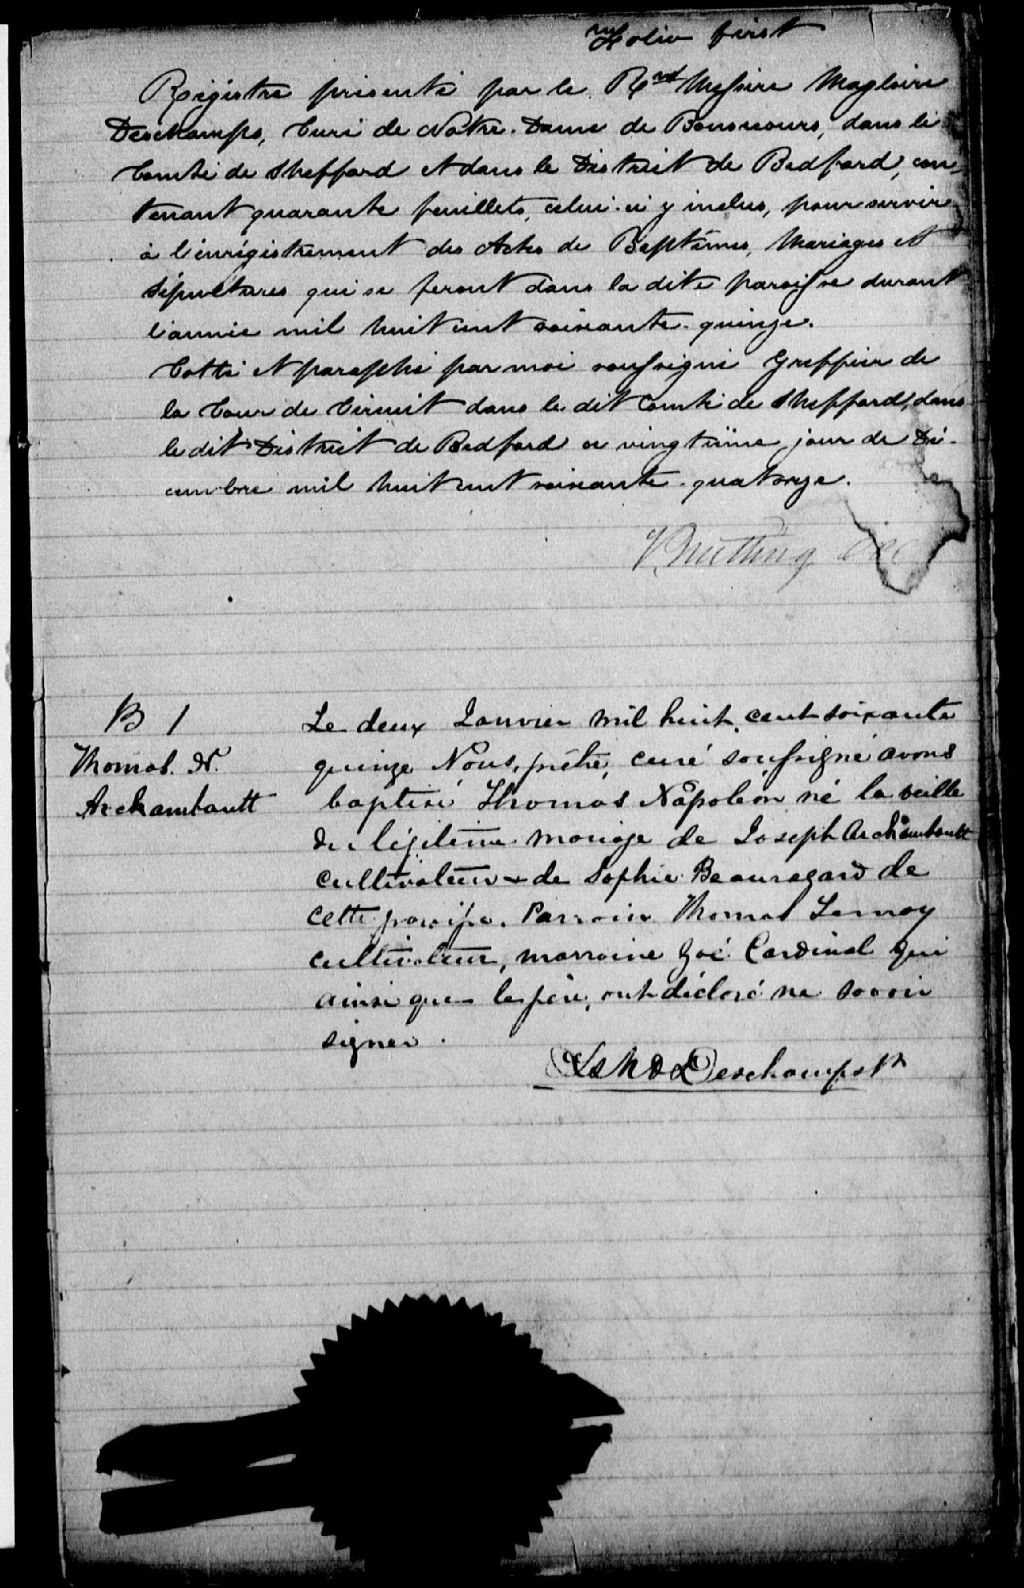 Folio first
Régistre présenté par le Rnd Messire Magloire
Deschamps, Curé de Notre-Dame de Bonsecours, dans le
Comté de Shefford et dans le District de Bedford, con-
tenant quarante feuillets, celui-ci y inclus, pour servir
à l'enrégistrement des Actes de Baptêmes, Mariages et
Sépultures qui se feront dans la dite paroisse durant
l'année mil huit cent soixante-quinze.
Cotté et paraphé par moi soussigné Greffier de
la Cour de Circuit dans le dit Comté de Shefford, dans
le dit District de Bedford ce vingtième jour de Dé-
cembre mil huit cent soixante-quatorze.
Nutting
B 1
Thomas. N.
Archambault
Le deux Janvier mil huit cent soixante
quinze Nous, prêtre, curé soussigné avons
baptisé Thomas Napoléon né la veille
du légitime mariage de Joseph Archambault
cultivateur & de Sophie Beauregard de
cette paroisse. Parrain Thomas Lemay
cultivateur, marraine Zoé Cardinal qui
ainsi que le père, ont déclaré ne savoir
signer.
Deschamps Ptr